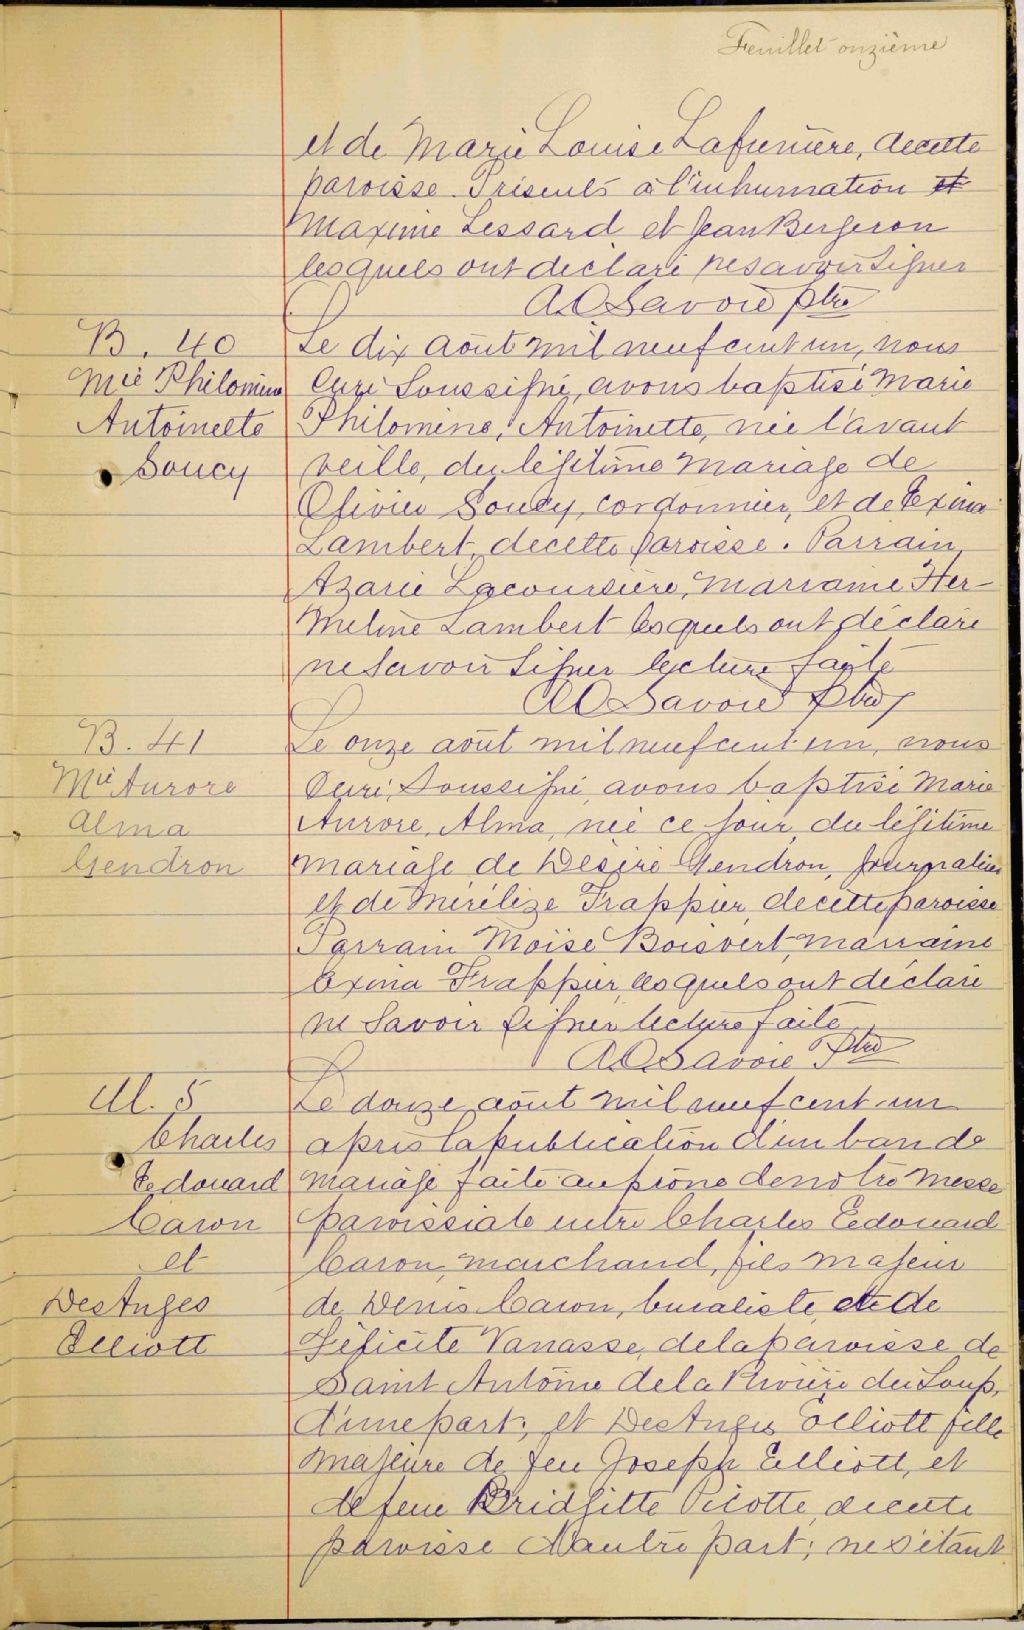 Feuillet onzième
et de Marie Louise Lafrenière, de cette
paroisse. Présents à l'inhumation et
Maxime Lessard et Jean Bergeron
lesquels ont déclaré ne savoir signer
A.O. Savoie ptre
B. 40
Mie Philomène
Antoinette
Soucy
Le dix août mil neuf cent un, nous
Curé soussigné, avons baptisé Marie
Philomène, Antoinette, née l'avant
veille, du légitime mariage de
Olivier Soucy, cordonnier, et de Exina
Lambert, de cette paroisse. Parrain,
Azarie Lacoursière, marraine Her-
meline Lambert lesquels ont déclaré
ne savoir signer lecture faite
A.O. Savoie ptre
B. 41
Mie Aurore
Alma
Gendron
Le onze août mil neuf cent un, nous
Curé, soussigné, avons baptisé Marie
Aurore, Alma, née ce jour, du légitime
mariage de Désiré Gendron, journalier
et de Mérélize Frappier, de cette paroisse
Parrain Moïse Boisvert, marraine
Exina Frappier, lesquels ont déclaré
ne savoir signer lecture faite
A.O. Savoie Ptre
M. 5
Charles
Edouard
Caron
et
Des Anges
Elliott
Le douze août mil neuf cent un
après la publication d'un ban de
mariage faite au prône de notre messe
paroissiale entre Charles Edouard
Caron, marchand, fils majeur
de Denis Caron, buraliste, et de
Félicité Vanasse, de la paroisse de
Saint Antoine de la Rivière du Loup,
d'une part; et Des Anges Elliott fille
majeure de feu Joseph Elliott, et
de feue Bridgitte Picotte, de cette
paroisse d'autre part; ne s'étant